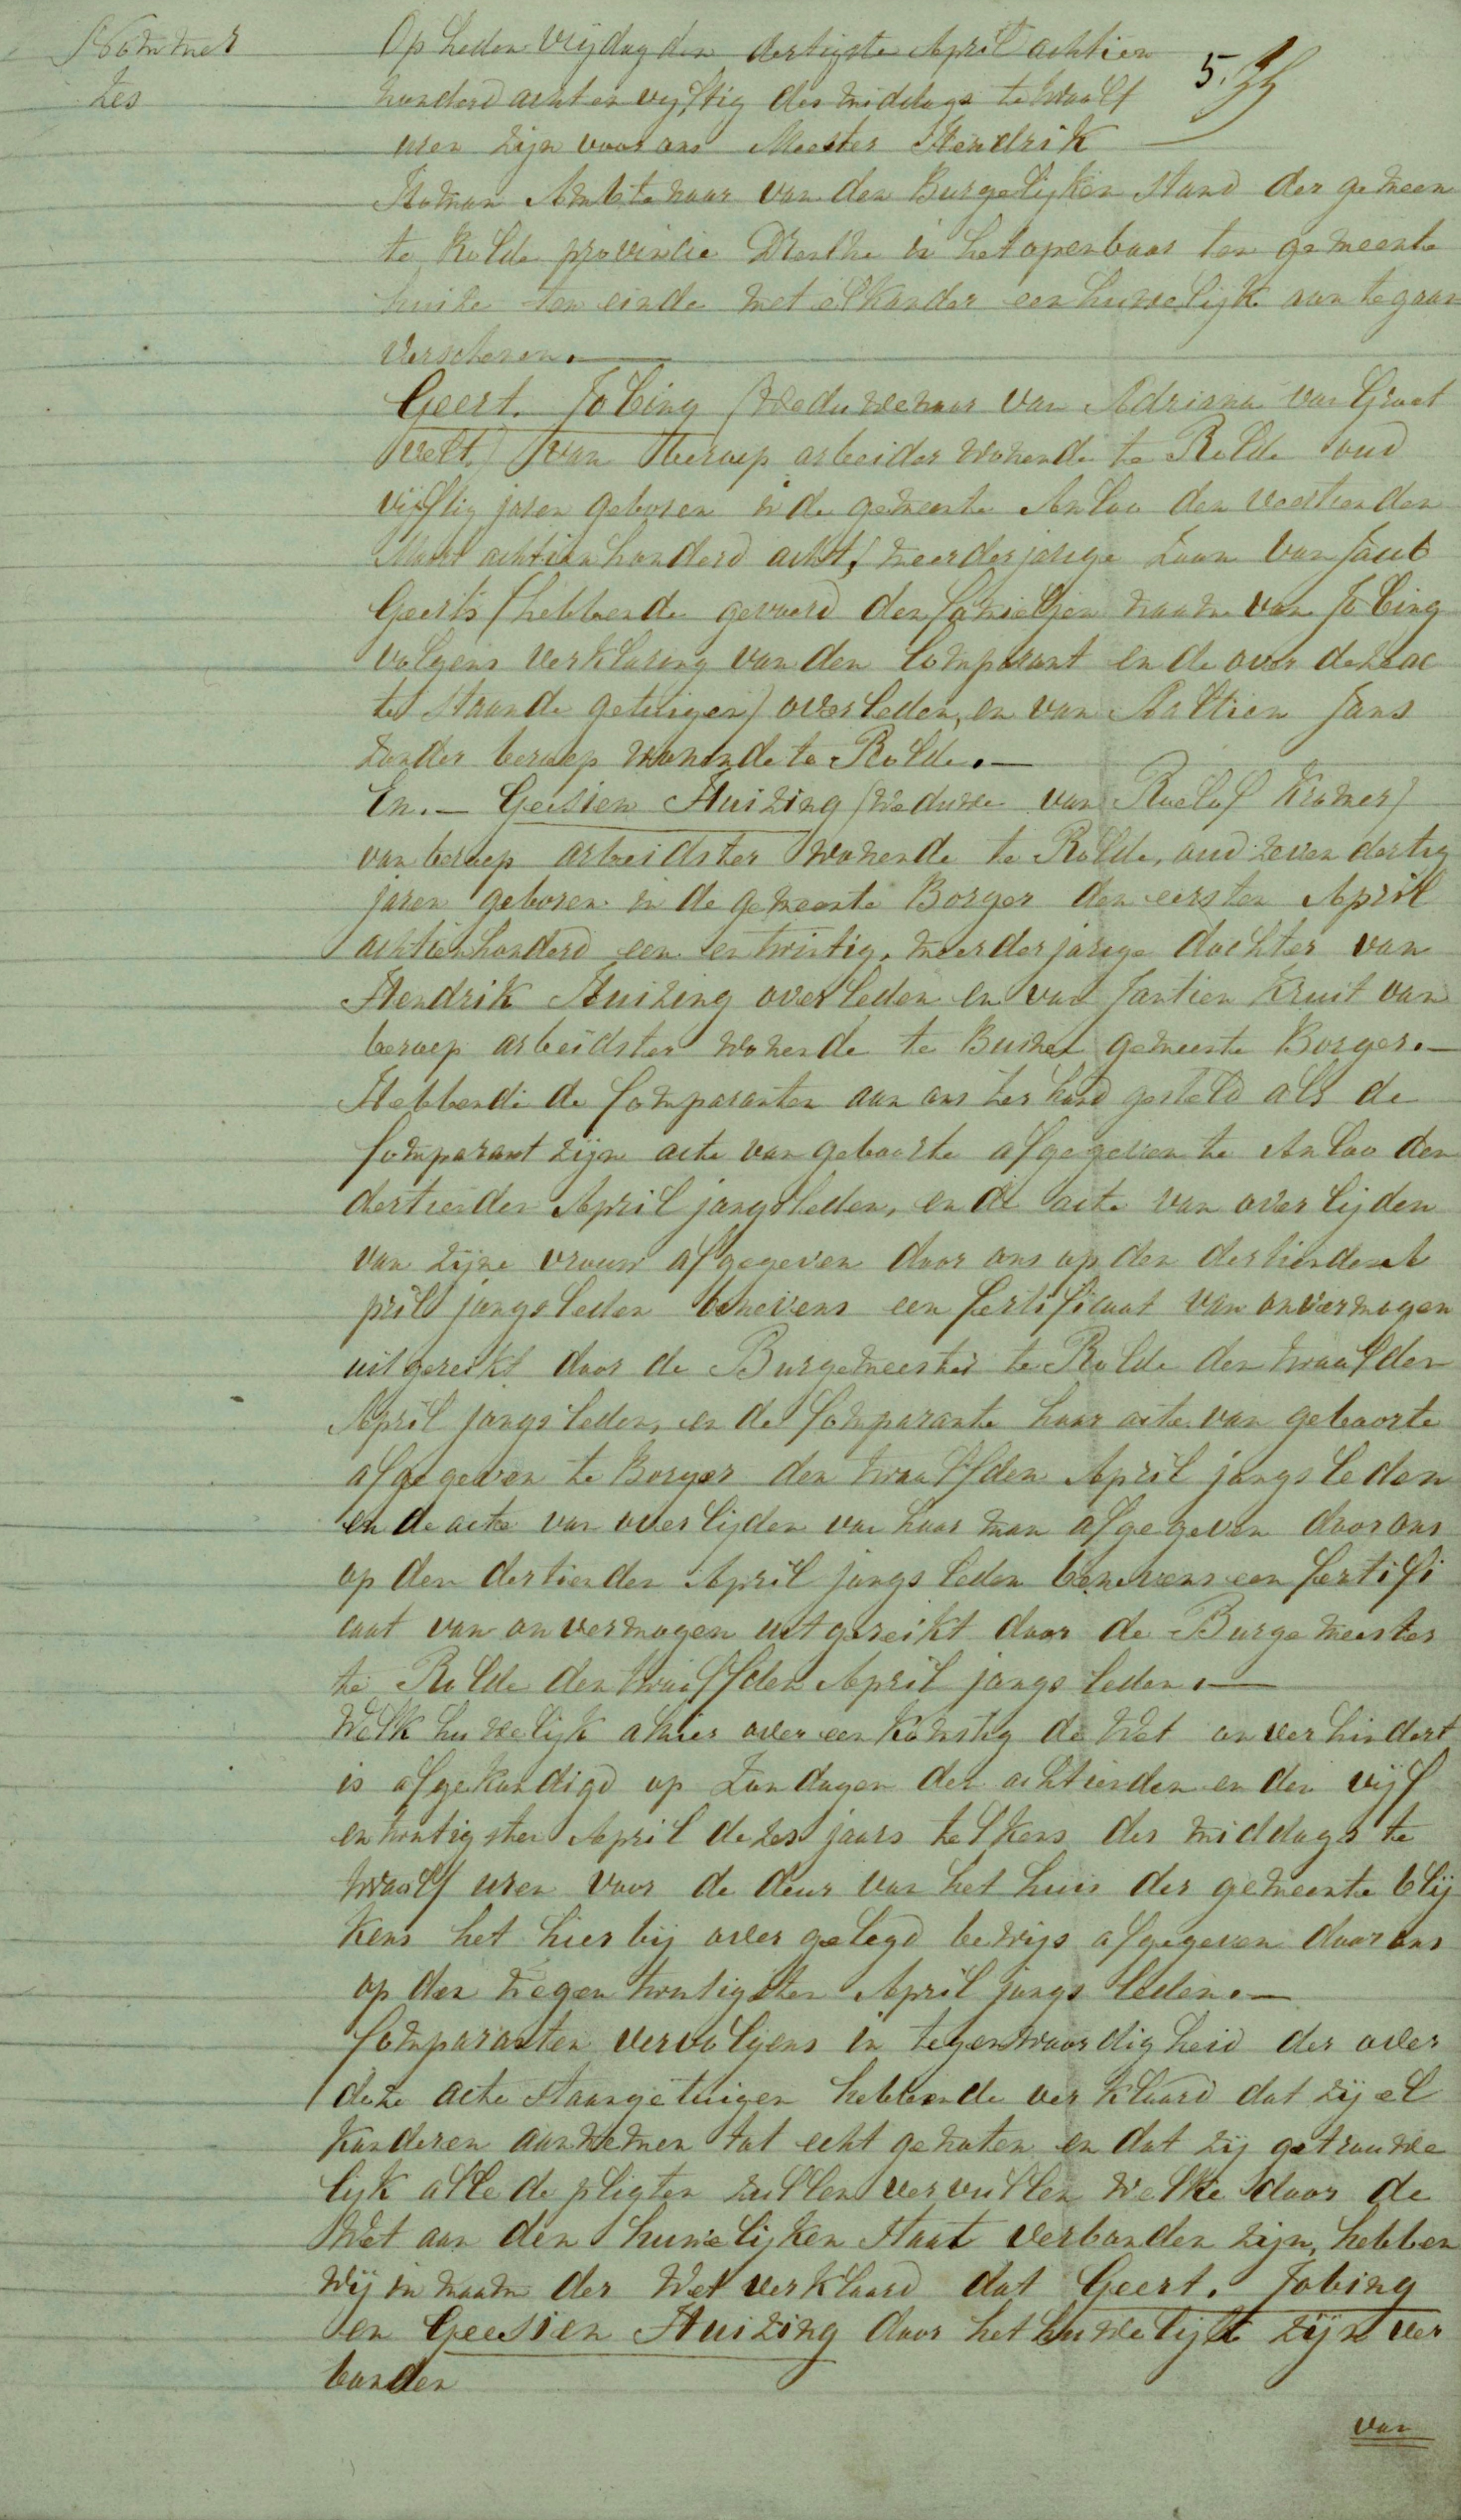 Nommer
Zes
Op heden vrijdag den dertigste April achtien
honderd acht en vyftig des middags te twaalf
uren zijn voor ons Meester Hendrik
Homan Ambtenaar van den Burgelijken Stand der gemeen
te Rolde provincie Drenthe in het openbaar ten gemeente
huize ten einde met elkander een huwelijk aan te gaan
verschenen. —
Geert. Jobing (Weduwenaar van Adriana van Groot
velt.) van beroep arbeider wonende te Rolde oud
vijftig jaren geboren in de gemeente Anloo den veertienden
Maart achtienhonderd acht, meerderjarige zoon van Jacob
Geerts (hebbende gevoerd den famieljen naam van Jobing
volgens verklaring van den Comparant en de over deze ac
te staande getuigen) overleden, en van Aaltien Jans
zonder beroep wonende te Rolde. —
En. — Geesien Huizing (weduwe van Roelof Kramer)
van beroep arbeidster wonende te Rolde, oud zeven dertig
jaren geboren in de gemeente Borger den eersten April
achtienhonderd een en twintig. meerderjarige dochter van
Hendrik Huizing overleden en van Jantien Kruit van
beroep arbeidster wonende te Buinen gemeente Borger. —
Hebbende de Comparanten aan ons ter hand gesteld als de
Comparant zijn acte van geboorte afgegeven te Anloo den
dertienden April jongsleden, en de acte van overlijden
van zijne vrouw afgegeven door ons op den dertienden A
pril jongsleden benevens een Certificaat van onvermogen
uitgereikt door de Burgemeester te Rolde den twaalfden
April jongsleden, en de Comparante haar acte van geboorte
afgegeven te Borger den twaalfden April jongsleden
en de acte van overlijden van haar man afgegeven door ons
op den dertienden April jongsleden benevens een Certifi
caat van onvermogen uitgereikt door de Burgemeester
te Rolde den twaalfden April jongsleden. —
Welk huwelijk alhier over een komstig de Wet onverhindert
is afgekondigd op Zondagen den achtienden en den vijf
en twintigsten April dezes jaars telkens des middags te
twaalf uren voor de deur van het huis der gemeente blij
kens het hierbij over gelegd bewijs afgegeven door ons
op den negen twintigsten April jongs leden. —
Comparanten vervolgens in tegenwoordigheid der over
deze acte staangetuigen hebbende verklaard dat zij el
kanderen aannemen tot echtgenoten en dat zij getrouwe
lijk alle de pligten zullen vervullen welke door de
Wet aan den huwelijken Staat verbonden zijn, hebben
Wij in naam der Wet verklaard dat Geert. Jobing
en Geesien Huizing door het huwelijk zijn ver
bonden
van